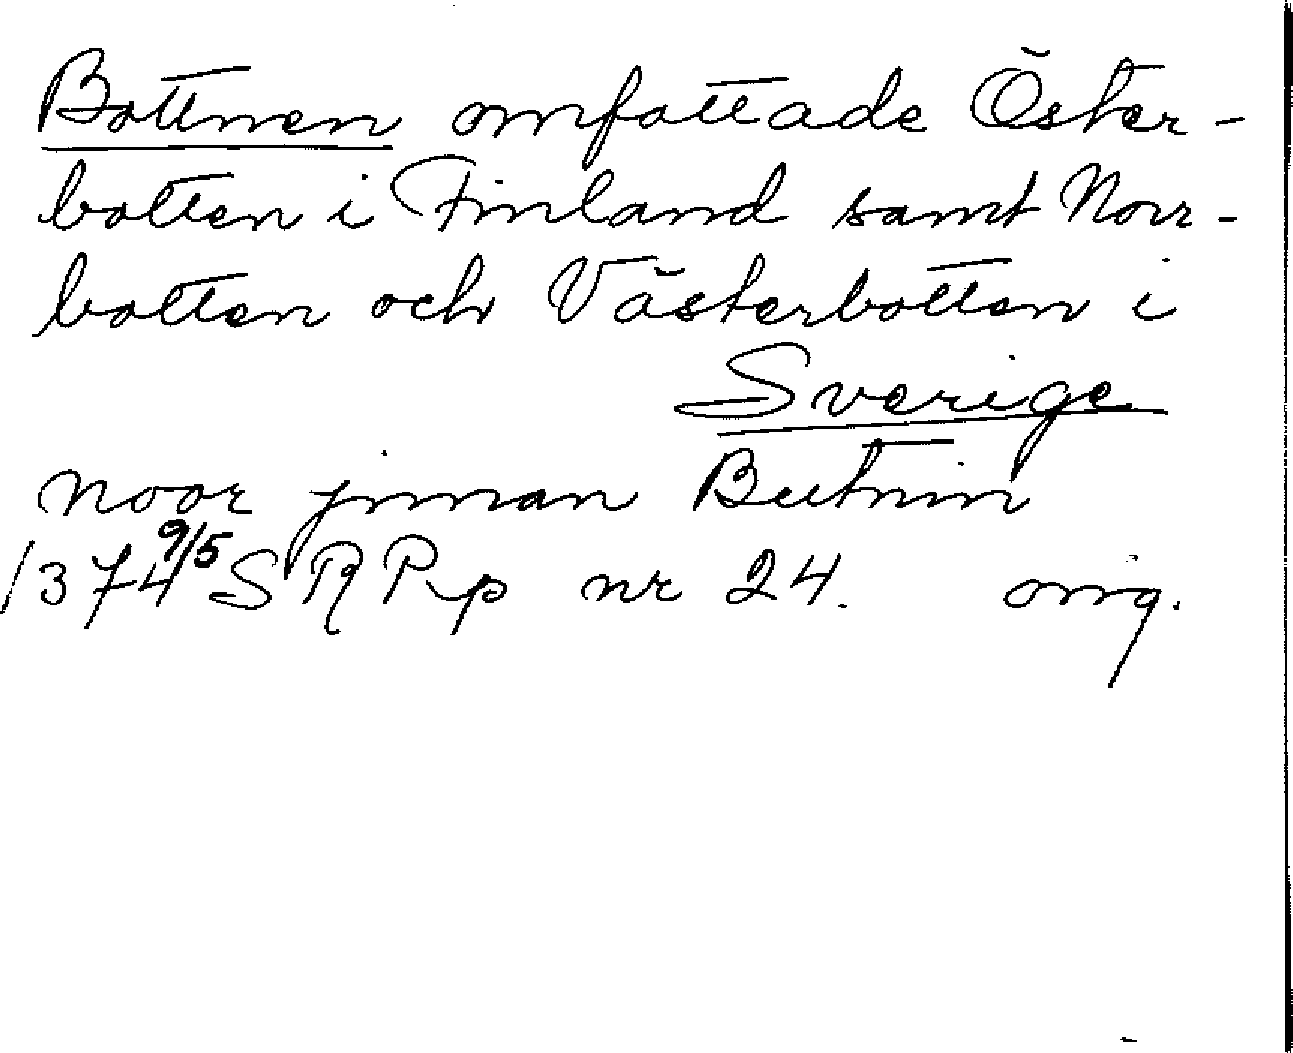 Bottnen omfattade Öster-
botten i Finland samt Norr-
botten och Västerbotten i
Sverige
noor jnnan Butnin
1374 9/5 SRPp nr 24. orig.